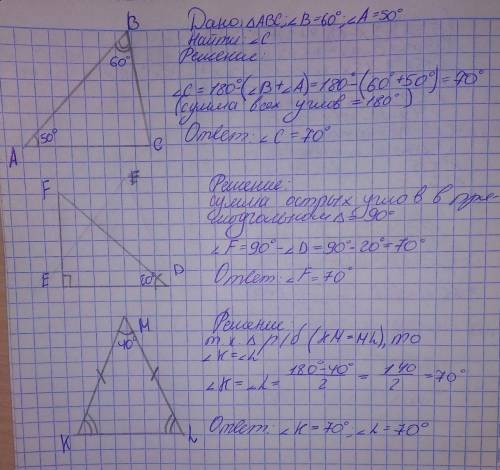 Дано: △ABC; ∠B=60°; ∠A=50°
Найти: ∠C
Решение:
∠C=180°(∠B+∠A)=180°-(60°+50°)=70°
(сумма всех углов =180°)
Ответ: ∠C=70°
B
60°
50°
A
C
Решение:
сумма острых углов в пря-
моугольном △=90°
∠F=90°-∠D=90°-20°=70°
Ответ: ∠F=70°
F
E
D
20°
Решение
т.к. △ р/б (KM=ML), то
∠K=∠L
∠K=∠L= 180°-40° / 2 = 140 / 2 =70°
Ответ: ∠K=70°; ∠L=70°
M
40°
K
L